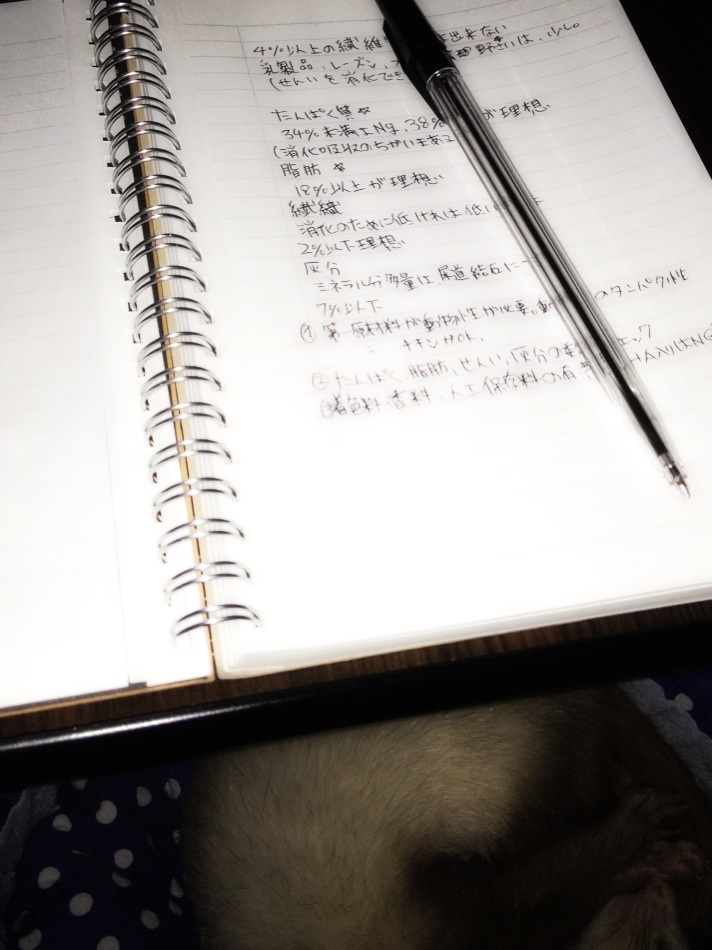 4%以上の繊維 出来ない
乳製品、レーズン、 野さいは、少し。
(せんいを消化でき
たんぱく質☆
34%未満はNg、38% が理想
(消化吸収のちがいもある
脂肪 ☆
18%以上が理想
繊維
消化のために低ければ低い
2%以下理想
灰分
ミネラル分多量は、尿道結石に
7%以下
① 第一原材料が動物性が必要。動 のタンパク性
チキンetc.
② たんぱく、脂肪、せんい、灰分の チェック
③着色料 香料、人工保存料の有